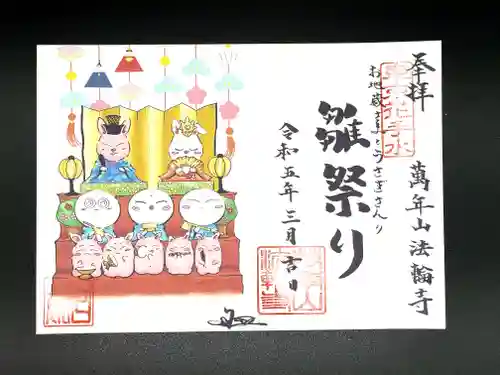 奉拝
萬年山法輪寺
お地蔵さまとうさぎさんの
雛祭り
令和五年三月吉日